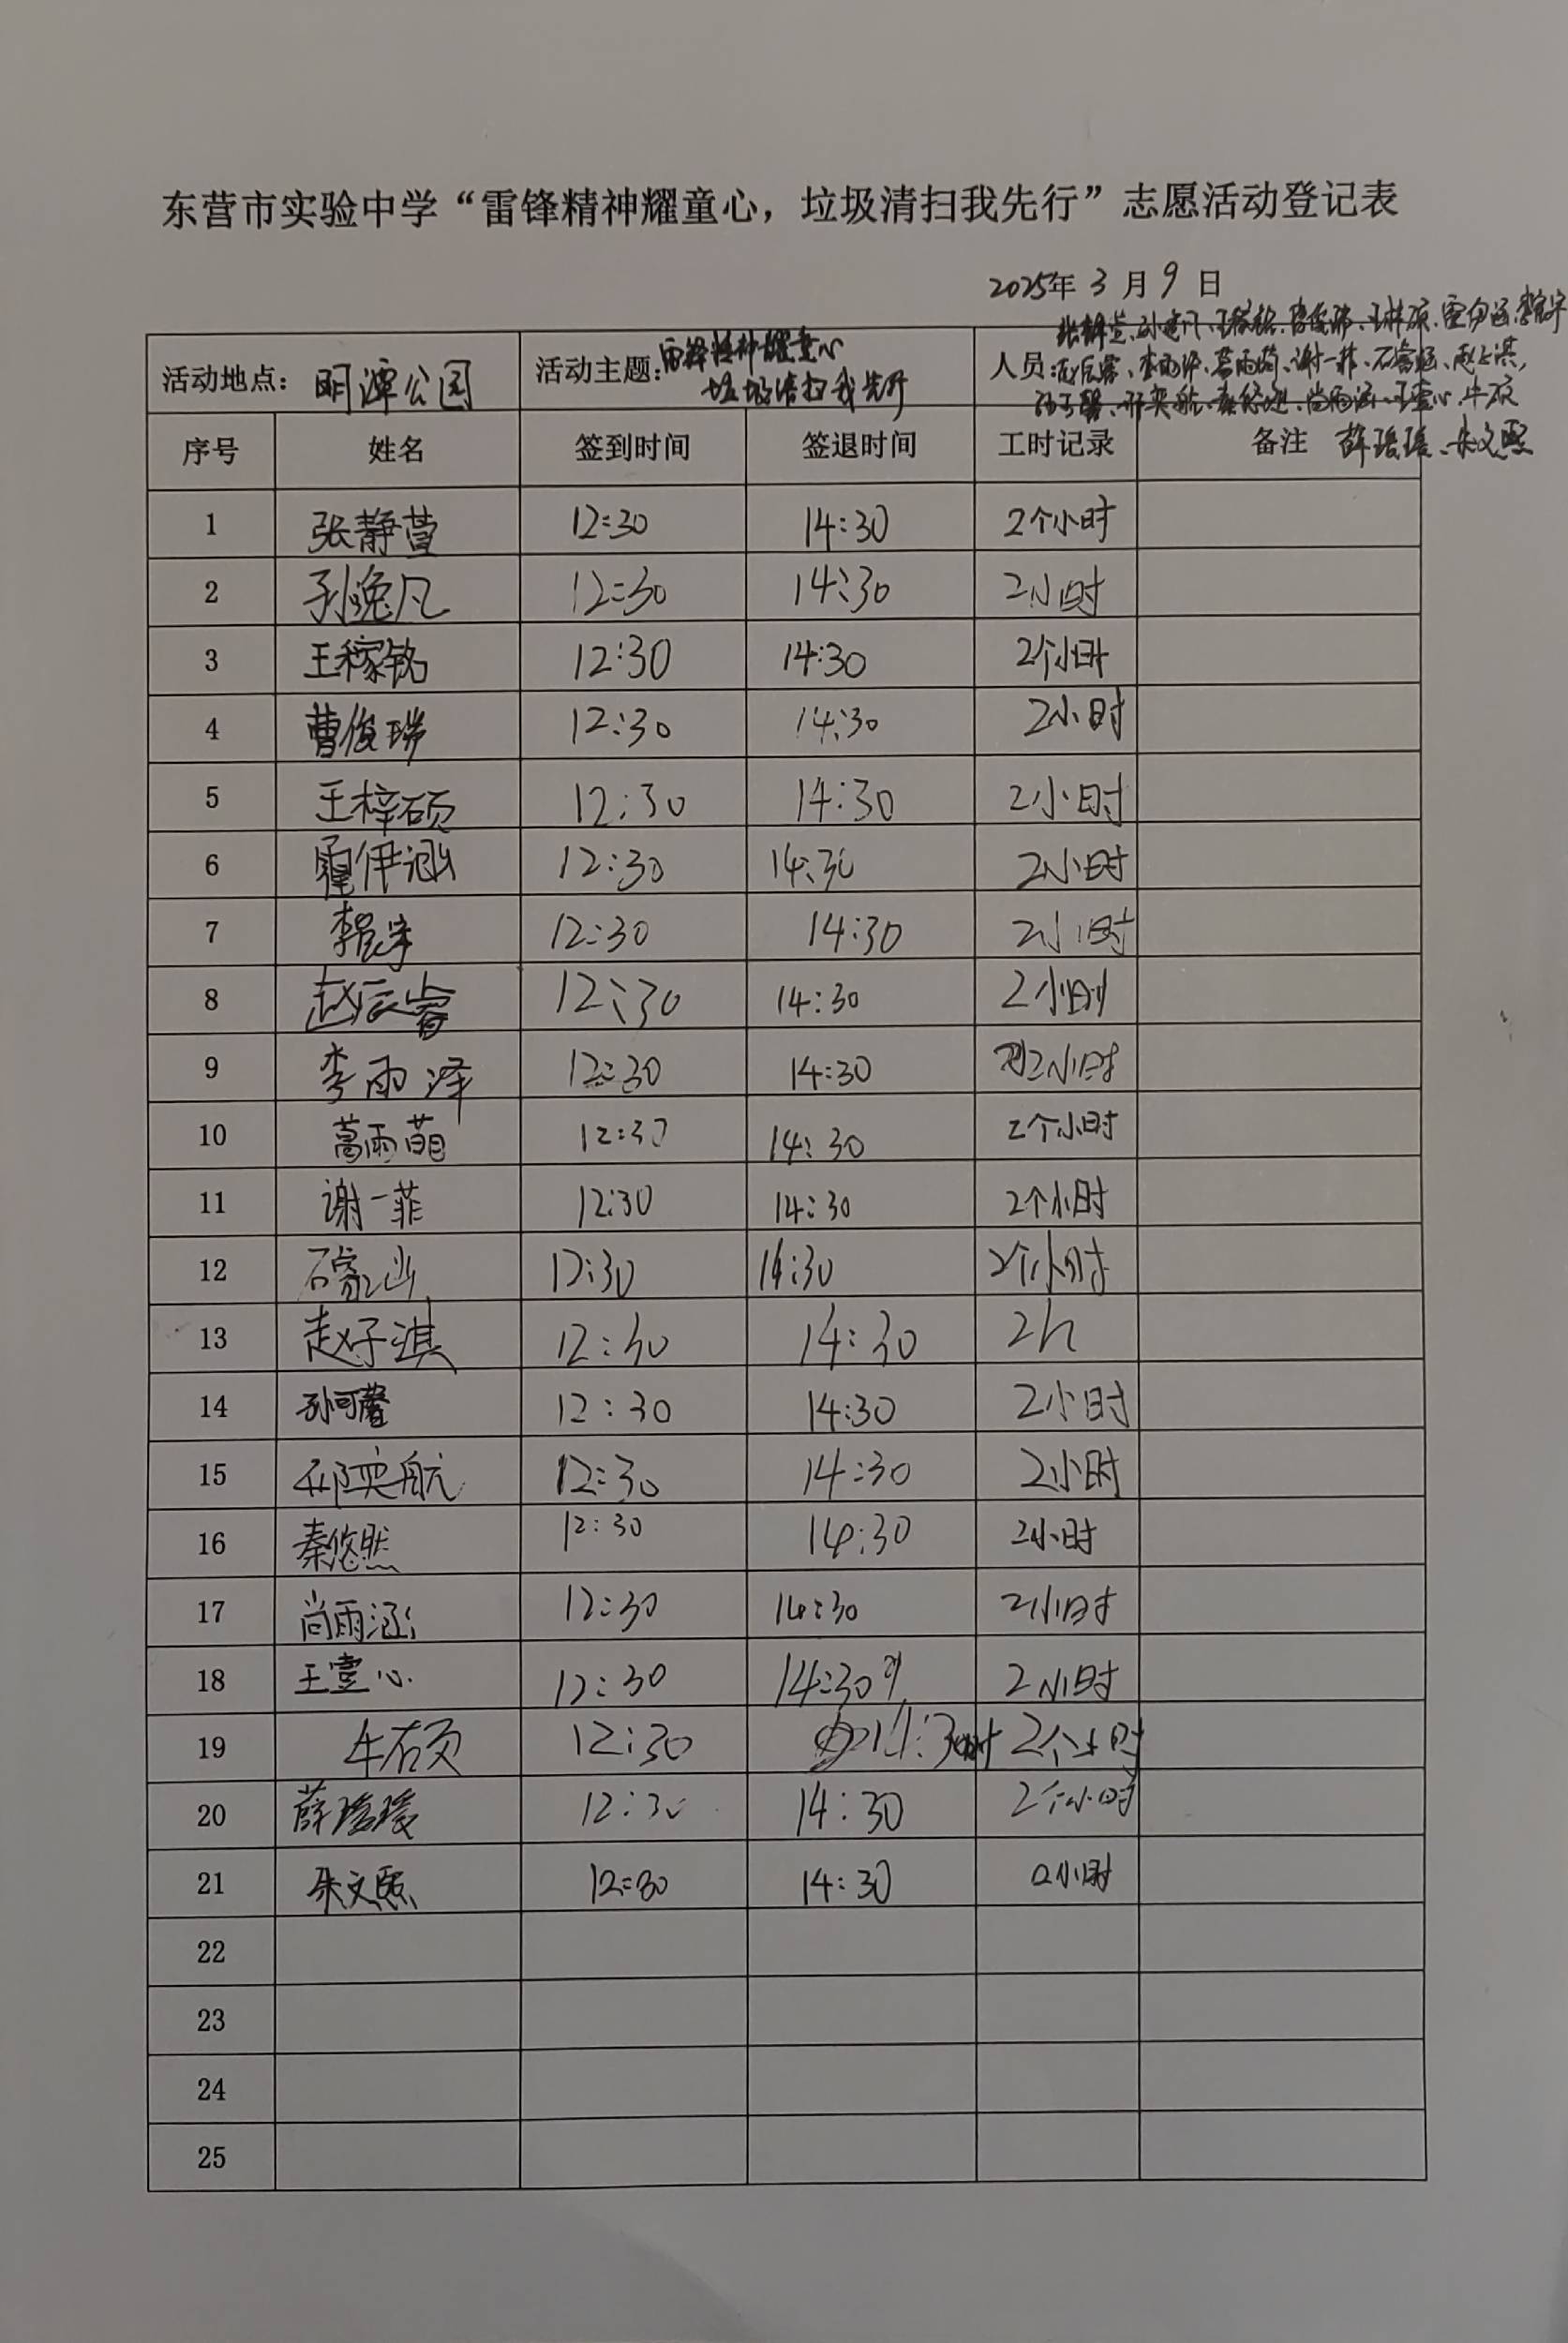 东营市实验中学“雷锋精神耀童心，垃圾清扫我先行”志愿活动登记表
2025年 3 月 9 日
活动地点：明潭公园 活动主题：雷锋精神耀童心 垃圾清扫我先行 人员：张静萱、孙逸凡、王稼铭、曹俊瑞、王梓硕、霍伊涵、李宸宇
赵辰睿、李雨泽、葛雨萌、谢一菲、石睿涵、赵子淇，
孙可馨、邢奕航、秦悠然、尚雨涵、王壹心、牛硕
薛瑷瑗、朱文熙
序号 姓名 签到时间 签退时间 工时记录 备注
1 张静萱 12:30 14:30 2个小时
2 孙逸凡 12:30 14:30 2小时
3 王稼铭 12:30 14:30 2个小时
4 曹俊瑞 12:30 14:30 2小时
5 王梓硕 12:30 14:30 2小时
6 霍伊涵 12:30 14:30 2小时
7 李宸宇 12:30 14:30 2小时
8 赵辰睿 12:30 14:30 2小时
9 李雨泽 12:30 14:30 2小时
10 葛雨萌 12:30 14:30 2个小时
11 谢一菲 12:30 14:30 2个小时
12 石睿涵 12:30 14:30 2个小时
13 赵子淇 12:30 14:30 2h
14 孙可馨 12:30 14:30 2小时
15 邢奕航 12:30 14:30 2小时
16 秦悠然 12:30 14:30 2小时
17 尚雨涵 12:30 14:30 2小时
18 王壹心 12:30 14:30 2小时
19 牛硕 12:30 14:30 2个小时
20 薛瑷瑗 12:30 14:30 2个小时
21 朱文熙 12:30 14:30 2小时
22
23
24
25